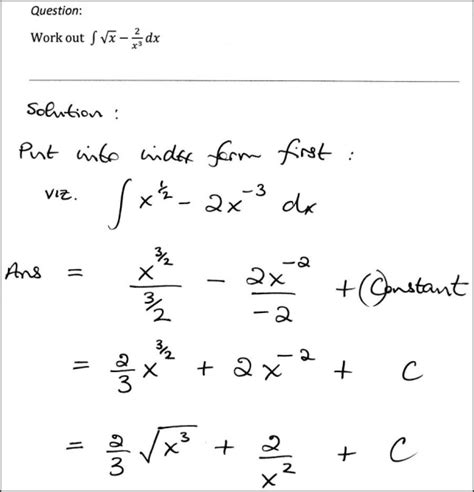 Question:
Work out ∫ √x − 2/x³ dx
Solution :
Put into index form first :
viz. ∫ x^½ − 2x^−3 dx
Ans = x^3/2 / 3/2 − 2x^−2 / −2 + (C)onstant
= 2/3 x^3/2 + 2x^−2 + C
= 2/3 √x³ + 2/x² + C